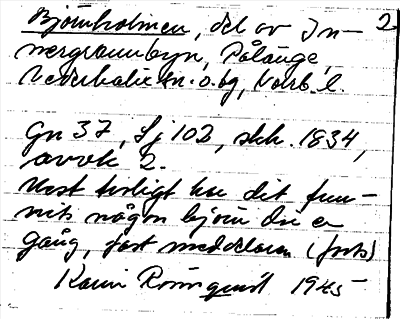 2
Björnholmen, del av In-
nergrannbyn, Pålänge,
Nederkalix sn. o. bg, Norrb. l.
Gn 37, Lj 102, skk. 1834,
avvk 2.
Mest troligt har det fun-
nits någon björn där en
gång, fast meddelaren (forts)
Karin Rönnqvist 1945